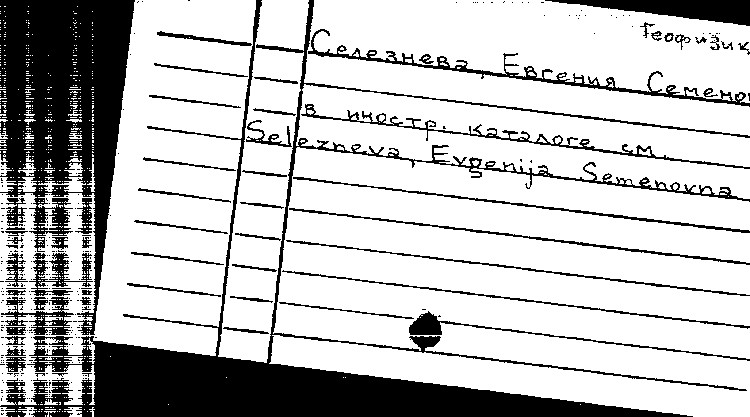 Геофизик
Селезнева, Евгения Семено
в иностр. каталоге см.
Selezneva, Evgenija Semenovna